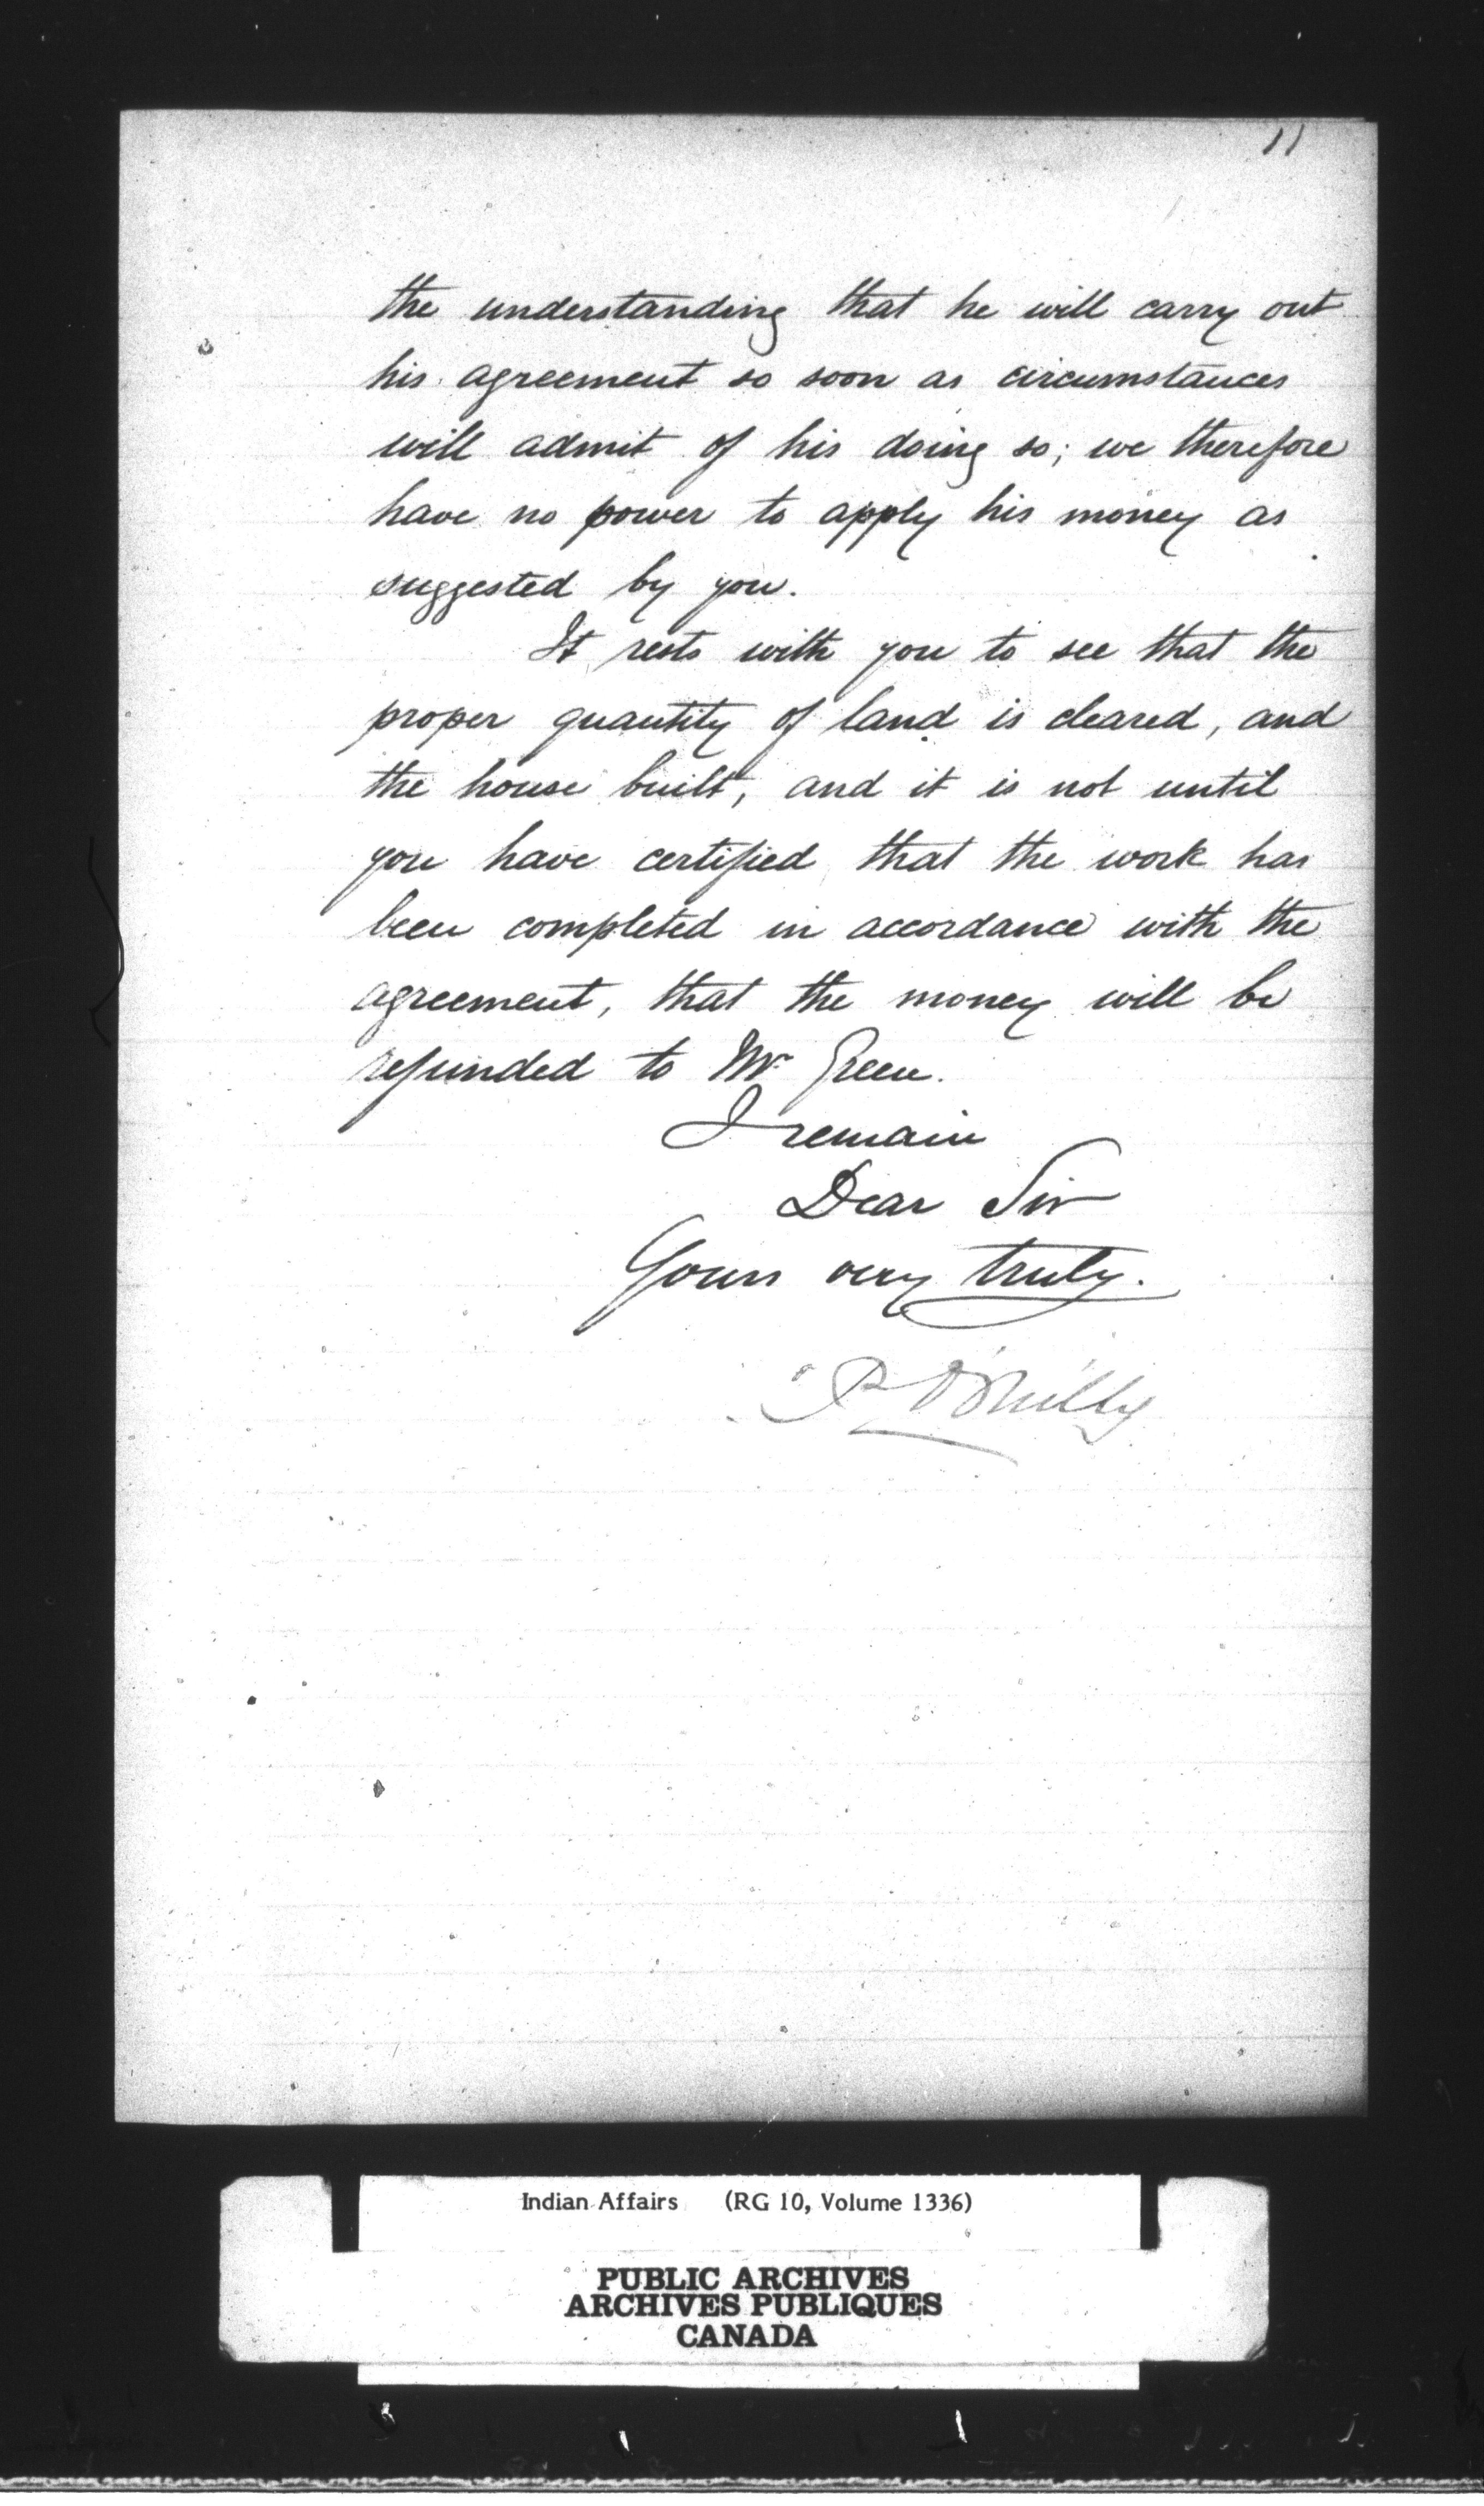 11
the understanding that he will carry out
his agreement so soon as circumstances
will admit of his doing so; we therefore
have no power to apply his money as
suggested by you.
It rests with you to see that the
proper quantity of land is cleared, and
the house built, and it is not until
you have certified that the work has
been completed in accordance with the
agreement, that the money will be
refunded to Mr Green.
I remain
Dear Sir
Yours very truly.
P O'Reilly
Indian Affairs (RG 10, Volume 1336)
PUBLIC ARCHIVES
ARCHIVES PUBLIQUES
CANADA